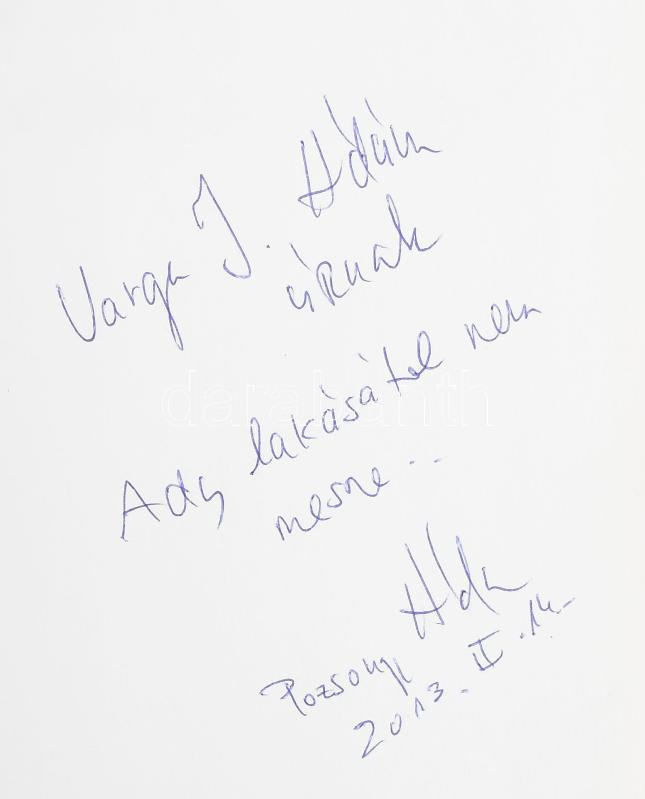 Varga J. Ádám
úrnak
Ady lakásától nem
messze..
Pozsonyi
2013. II. 14.
darabanth